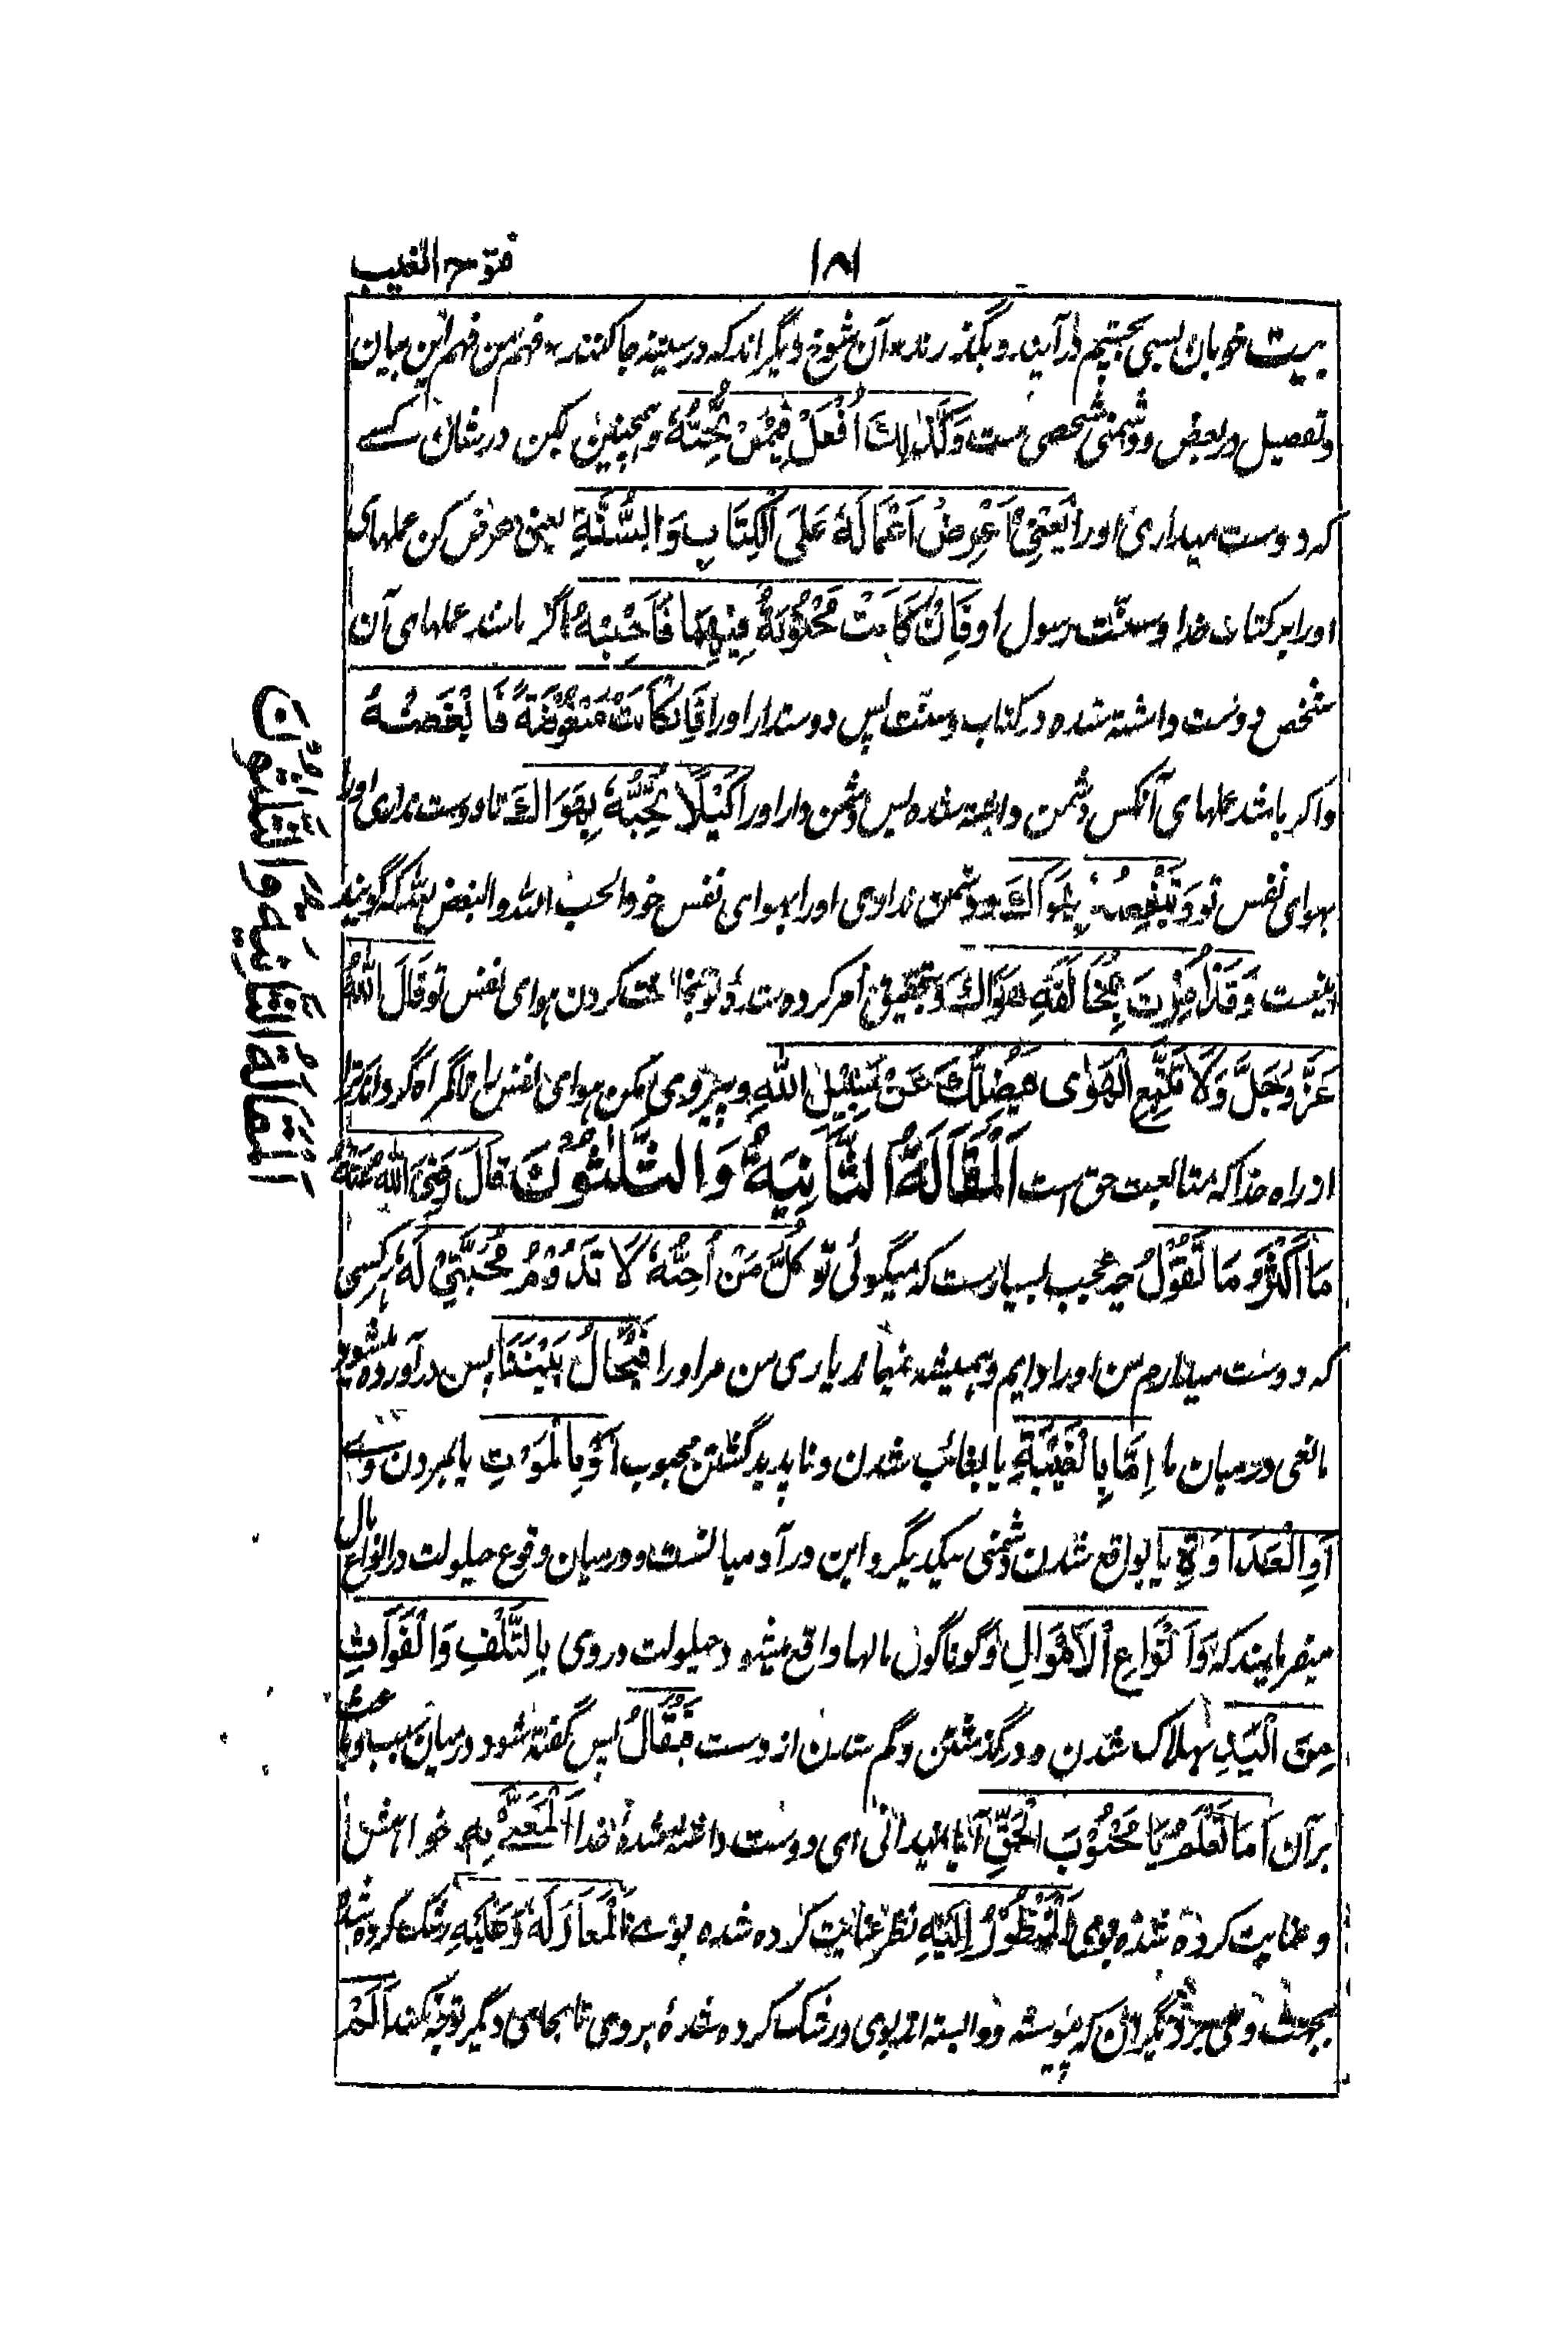 فتوح الغیب
۱۸۱
بیت خوبان بسی بچشم در آیند و بگذرند آن شوخ دیگر اند که در سینه جا کنند فهم من فهم این بیان
و تفصیل در بعض و دشمنی شخصی ست وَكَذٰلِكَ اُفْعَلْ فِیْمَنْ تُحِبُّهٗ و همچنین بکن در شان کسے
که دوست میداری او را یَعْنِیْ اَعْرِضْ اَعْمَالَهٗ عَلَی الْكِتَابِ وَالسُّنَّةِ یعنی عرض کن عملهای
او را بر کتاب خدا و سنت رسول او فَاِنْ كَانَتْ مَحْبُوْبَةً فِیْهِمَا فَاَحْبِبْهُ اگر باشد عملهای آن
شخص دوست داشته شده در کتاب و سنت پس دوستدار او را فَاِنْ كَانَتْ مَبْغُوْضَةً فَابْغَضْهُ
و اگر باشد عملهای آنکس دشمن داشته شده پس دشمن دار او را كَیْلَا تُحِبُّهٗ بِهَوَاكَ تا دوست نداری او را
بهوای نفس تو وَتَبْغِضُهٗ بِهَوَاكَ و دشمن نداری او را بهوای نفس خود الحب لله و البغض لله که گویند
اینست وَقَدْ اُمِرْتَ بِمُخَالَفَةِ هَوَاكَ و بتحقیق امر کرده شده تو بمخالفت کردن هوای نفس تو قَالَ اللهُ
عَزَّ وَجَلَّ وَلَا تَتَّبِعِ الْهَوٰی فَیُضِلَّكَ عَنْ سَبِیْلِ اللهِ و پیروی مکن هوای نفس را تا گمراه گرداند ترا
از راه خدا که متابعت حق است اَلْمَقَالَةُ الثَّانِیَةُ وَالثَّلٰثُوْنَ قَالَ رَضِیَ اللهُ عَنْهُ
مَا اَكْثَرَ مَا تَقُوْلُ چه عجب بسیارست که میگوئی تو كُلُّ مَنْ اُحِبُّهٗ لَا تَدُوْمُ مُحَبَّتِیْ لَهٗ هر کسی
که دوست میدارم من او را دایم و همیشه نمیماند یاری من مر او را فَیُحَالُ بَیْنَنَا پس در آورده میشود
مانعی در میان ما اِمَّا بِالْغَیْبَةِ یا بغائب شدن و ناپدید گشتن محبوب اَوْ بِالْمَوْتِ یا بمردن وے
اَوِ الْعَدَاوَةِ یا بواقع شدن دشمنی یکدیگر و این در آدمیانست و در میان وقوع حیلولت در انواع مال
میفرمایند که وَاَنْوَاعِ الْاَمْوَالِ و گوناگون مالها واقع میشود حیلولت در وی بِالتَّلَفِ وَالْفَوَاتِ
مِنَ الْیَدِ بهلاک شدن و در گذشتن و گم شدن از دست فَیُقَالُ پس گفته شود در میان سبب و
بر آن اَمَا تَعْلَمُ یَا مَحْبُوْبَ الْحَقِّ آیا نمیدانی ای دوست داشته شدهٔ خدا اَلْمَعْنِیَّ بِهٖ خواهش
و عنایت کرده شده بوی اَلْمَنْظُوْرَ اِلَیْهِ نظر عنایت کرده شده بوے اَلْمَغَارَ لَهٗ وَعَلَیْهِ رشک کرده شده
بجهت وی بر دیگران که پیوسته و وابسته اند بوی و رشک کرده شدهٔ بر وی تا بجای دیگر توجه نکند اَلَمْ
اَلْمَقَالَةُ الثَّانِیَةُ وَالثَّلٰثُوْنَ